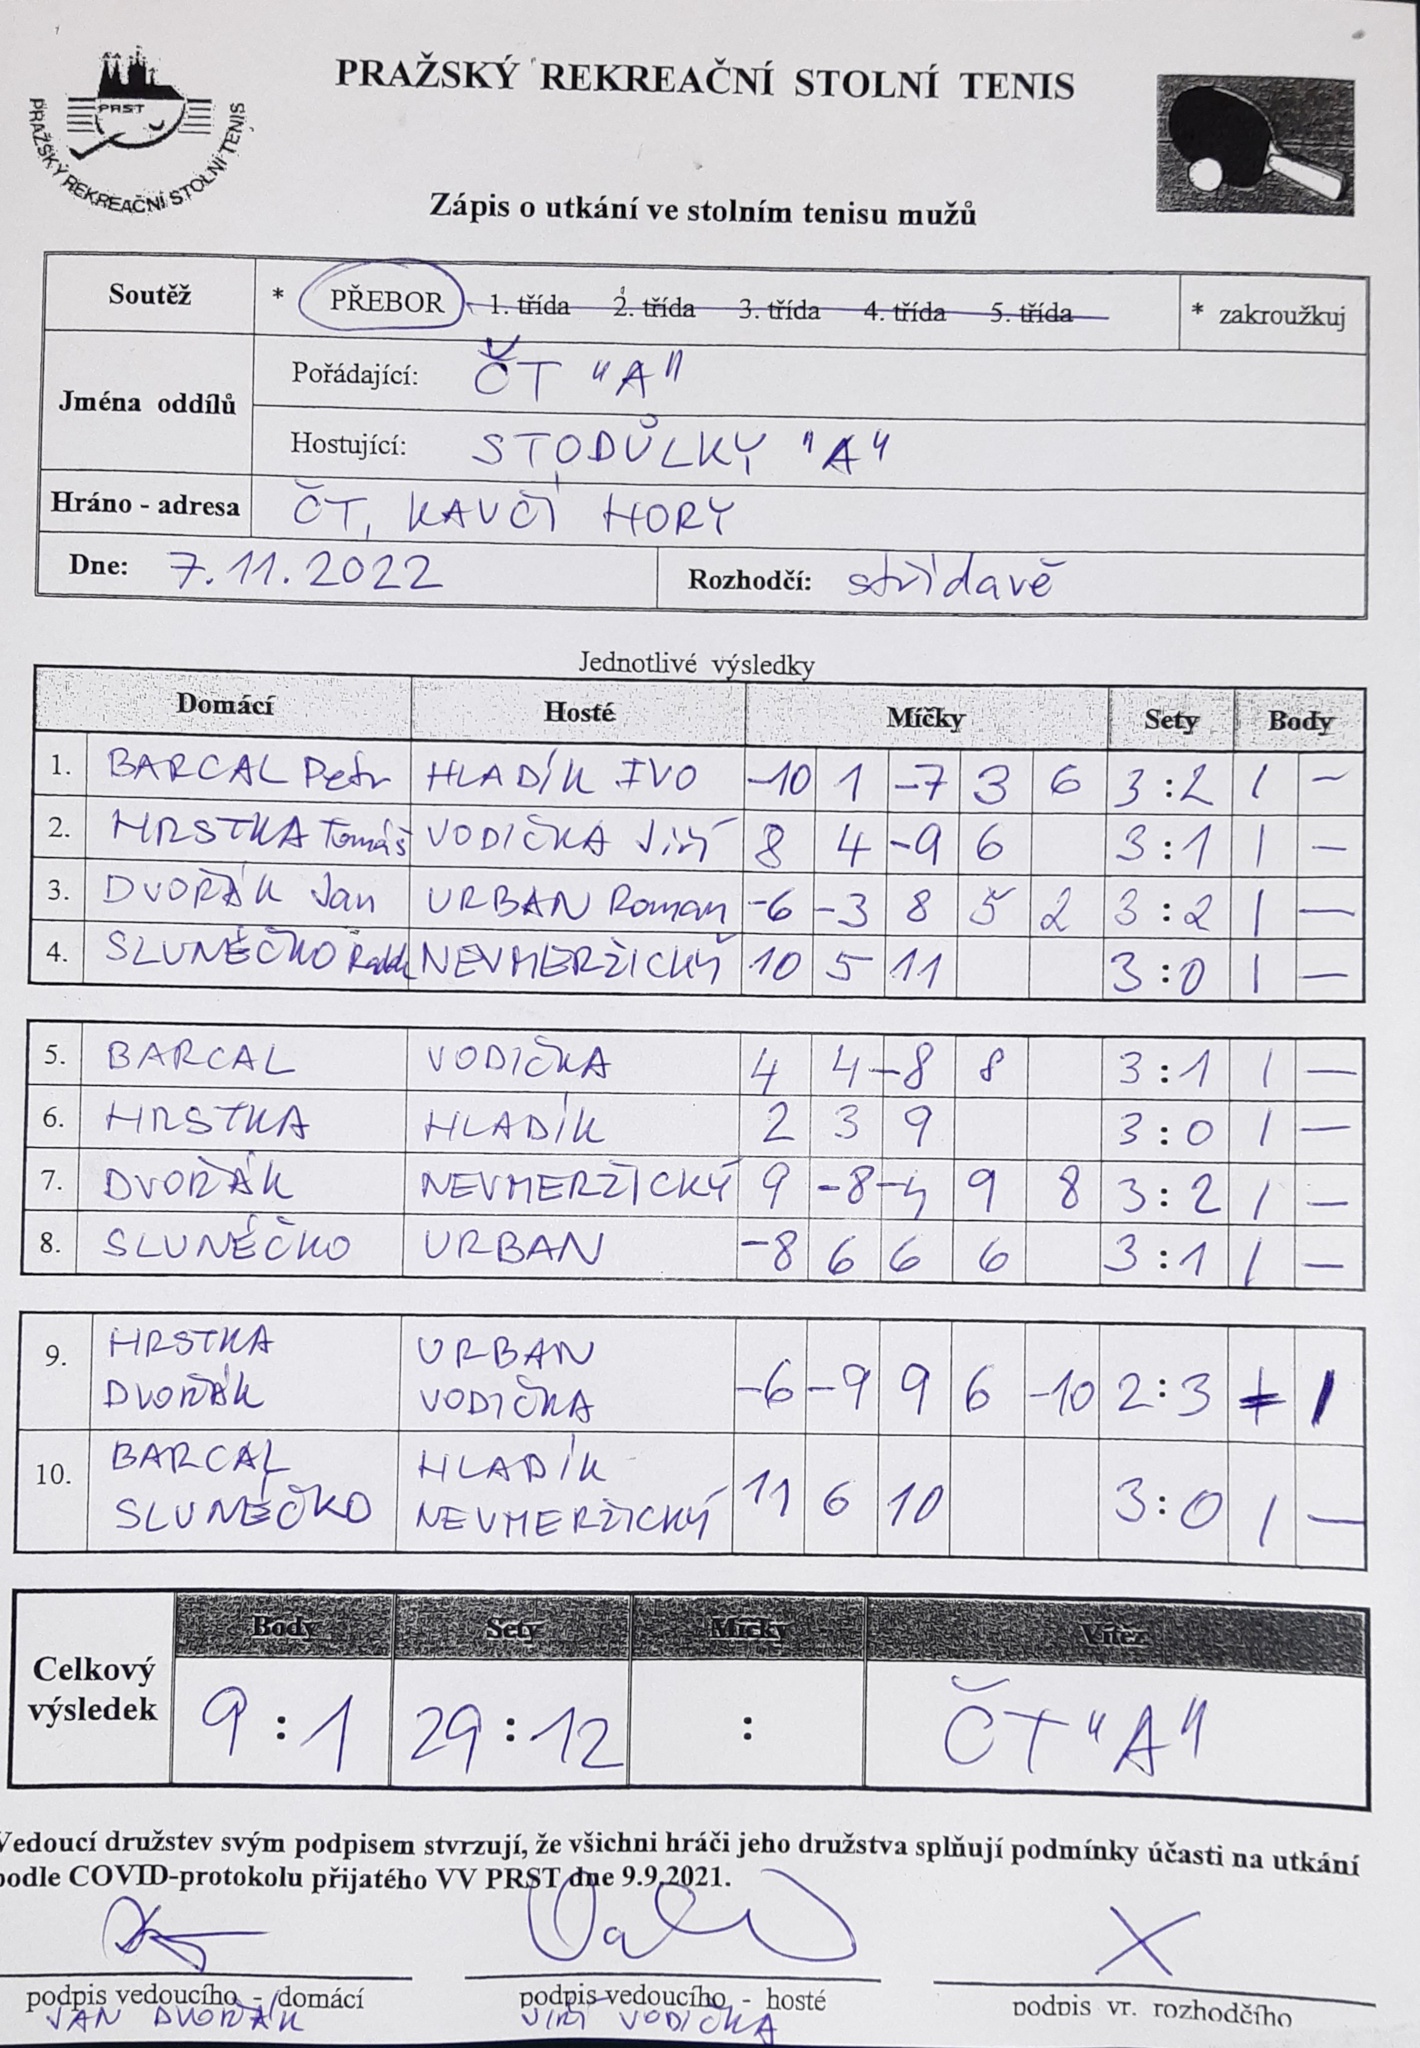 PRAŽSKÝ REKREAČNÍ STOLNÍ TENIS
PRST
PRAŽSKÝ REKREAČNÍ STOLNÍ TENIS
Zápis o utkání ve stolním tenisu mužů
Soutěž * PŘEBOR 1. třída 2. třída 3. třída 4. třída 5. třída * zakroužkuj
Jména oddílů
Pořádající: ČT "A"
Hostující: STODŮLKY "A"
Hráno - adresa ČT, KAVČÍ HORY
Dne: 7.11.2022 Rozhodčí: střídavě
Jednotlivé výsledky
Domácí Hosté Míčky Sety Body
1. BARCAL Petr HLADÍK IVO -10 1 -7 3 6 3:2 1 -
2. HRSTKA Tomáš VODIČKA Jiří 8 4 -9 6 3:1 1 -
3. DVOŘÁK Jan URBAN Roman -6 -3 8 5 2 3:2 1 -
4. SLUNÉČKO Radek NEVMERŽICKÝ 10 5 11 3:0 1 -
5. BARCAL VODIČKA 4 4 -8 8 3:1 1 -
6. HRSTKA HLADÍK 2 3 9 3:0 1 -
7. DVOŘÁK NEVMERŽICKÝ 9 -8 -4 9 8 3:2 1 -
8. SLUNÉČKO URBAN -8 6 6 6 3:1 1 -
9. HRSTKA URBAN
DVOŘÁK VODIČKA -6 -9 9 6 -10 2:3 - 1
10. BARCAL HLADÍK
SLUNÉČKO NEVMERŽICKÝ 11 6 10 3:0 1 -
Body Sety Míčky Vítěz
Celkový výsledek 9:1 29:12 : ČT "A"
Vedoucí družstev svým podpisem stvrzují, že všichni hráči jeho družstva splňují podmínky účasti na utkání
podle COVID-protokolu přijatého VV PRST dne 9.9.2021.
X
podpis vedoucího - domácí podpis vedoucího - hosté podpis vr. rozhodčího
JAN DVOŘÁK JIŘÍ VODIČKA